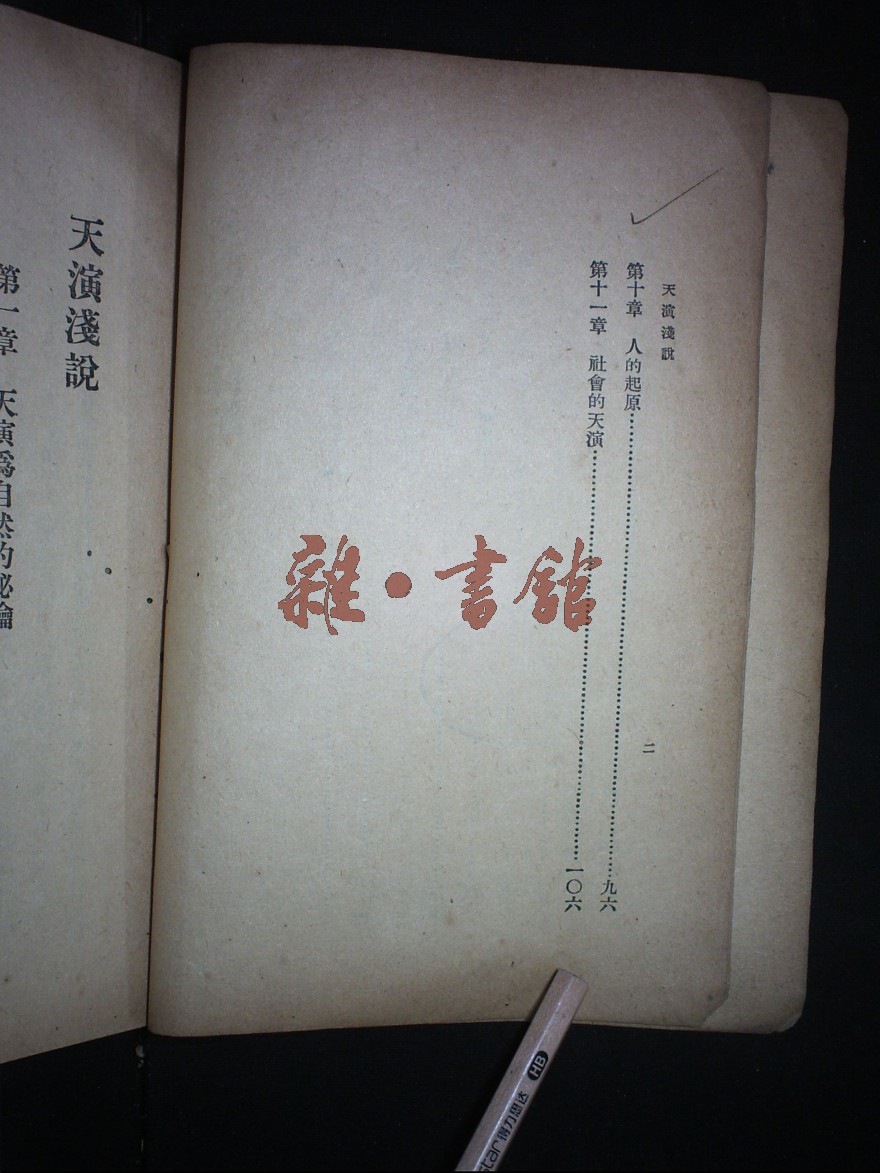 天演淺說
第十章　人的起原……九六
第十一章　社會的天演……一〇六
二
天演淺說
第一章　天演爲自然的秘鑰
雜·書館
HB
star 得力思达